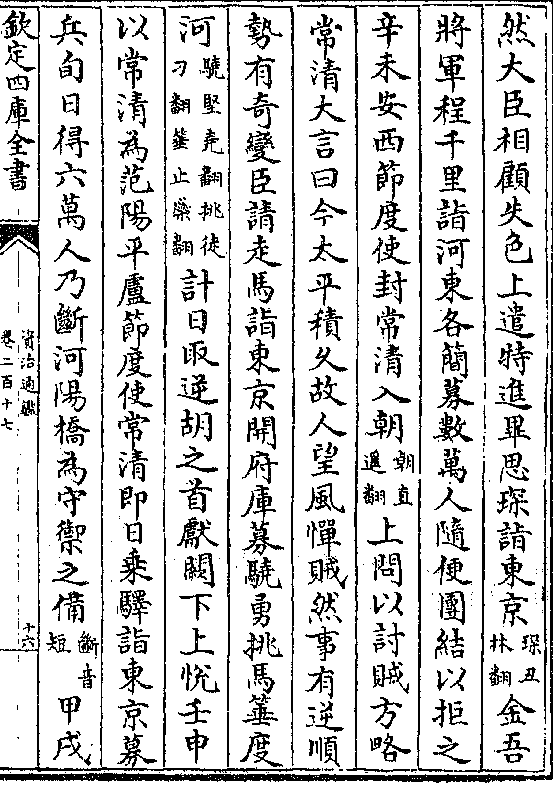 然大臣相顧失色上遣特進畢思琛詣東京琛丑林翻金吾
將軍程千里詣河東各簡募數萬人隨便團結以拒之
辛未安西節度使封常清入朝朝直遥翻上問以討賊方略
常清大言曰今太平積久故人望風憚賊然事有逆順
勢有奇變臣請走馬詣東京開府庫募驍勇挑馬箠度
河驍堅堯翻挑徒刁翻箠止橤翻計日取逆胡之首獻闕下上悅壬申
以常清為范陽平盧節度使常清即日乗驛詣東京募
兵旬日得六萬人乃斷河陽橋為守禦之備斷音短甲戌
欽定四庫全書
資治通鑑
卷二百十七
十六